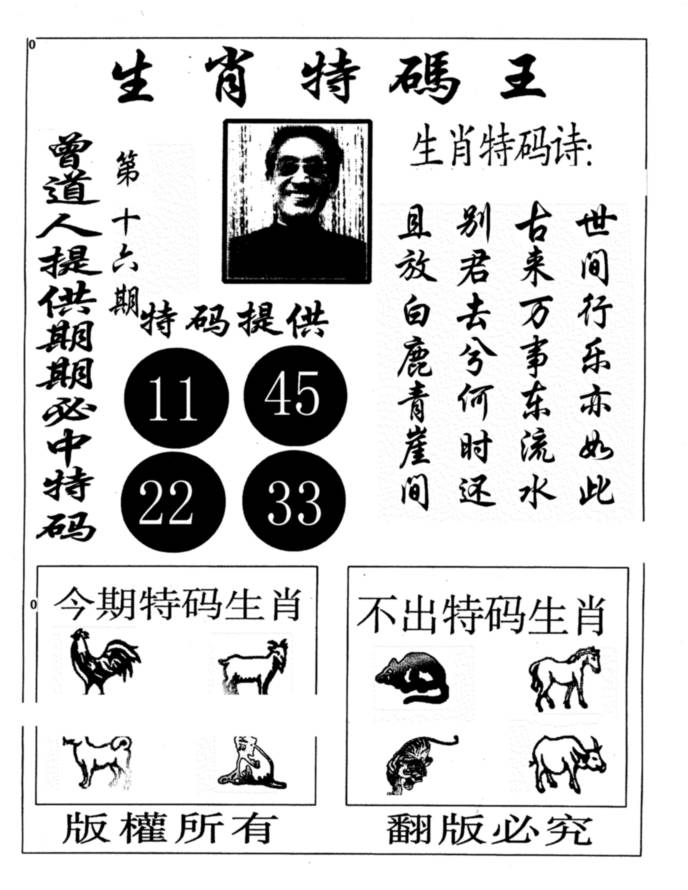 0
生肖特碼王
曾道人提供期期必中特码
第十六期
生肖特码诗:
世间行乐亦如此
古来万事东流水
别君去兮何时还
且放白鹿青崖间
特码提供
11 45
22 33
0
今期特码生肖
不出特码生肖
版權所有
翻版必究